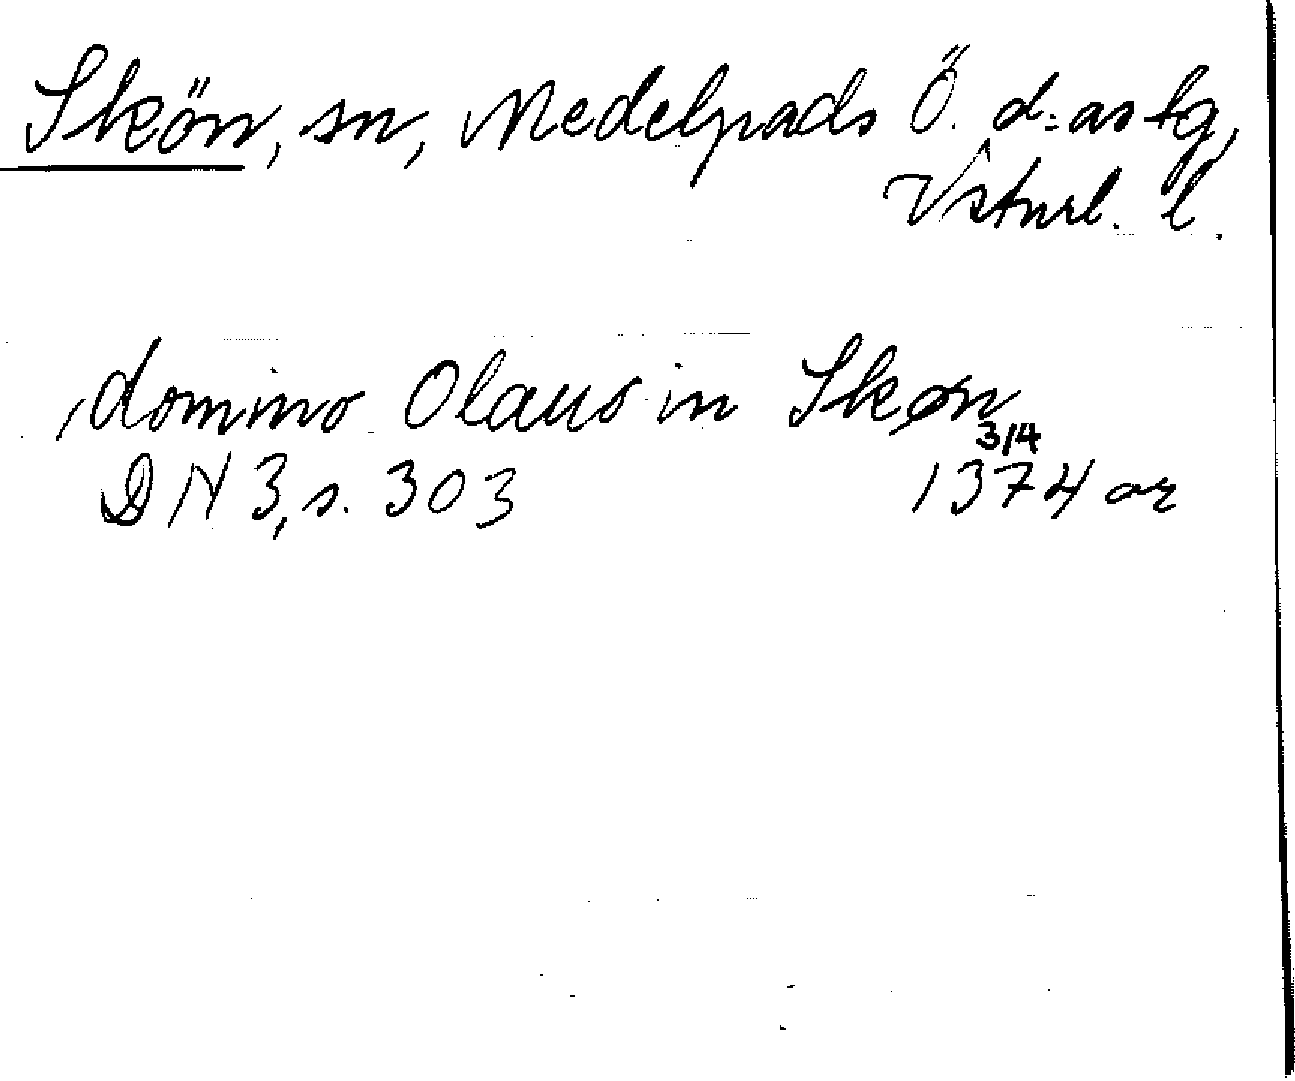 Skön, sn, Medelpads Ö. d:as tg,
Vstnrl. l.
domino Olaus in Skøn
3/4
DN 3, s. 303 1374 or